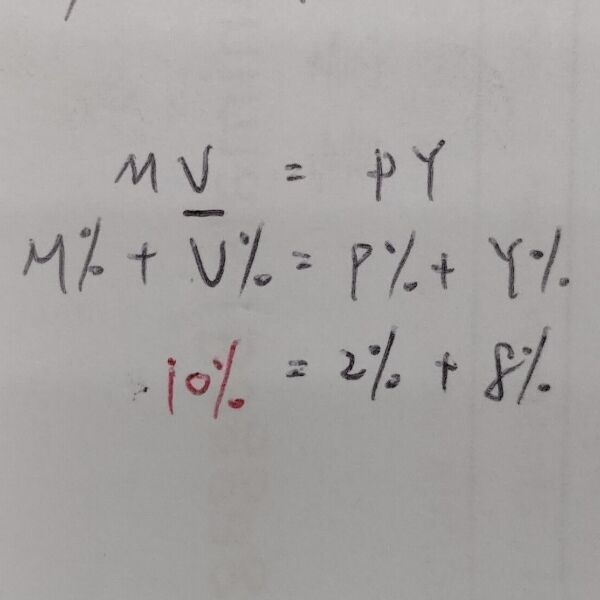 MV = PY
M% + V% = P% + Y%
10% = 2% + 8%